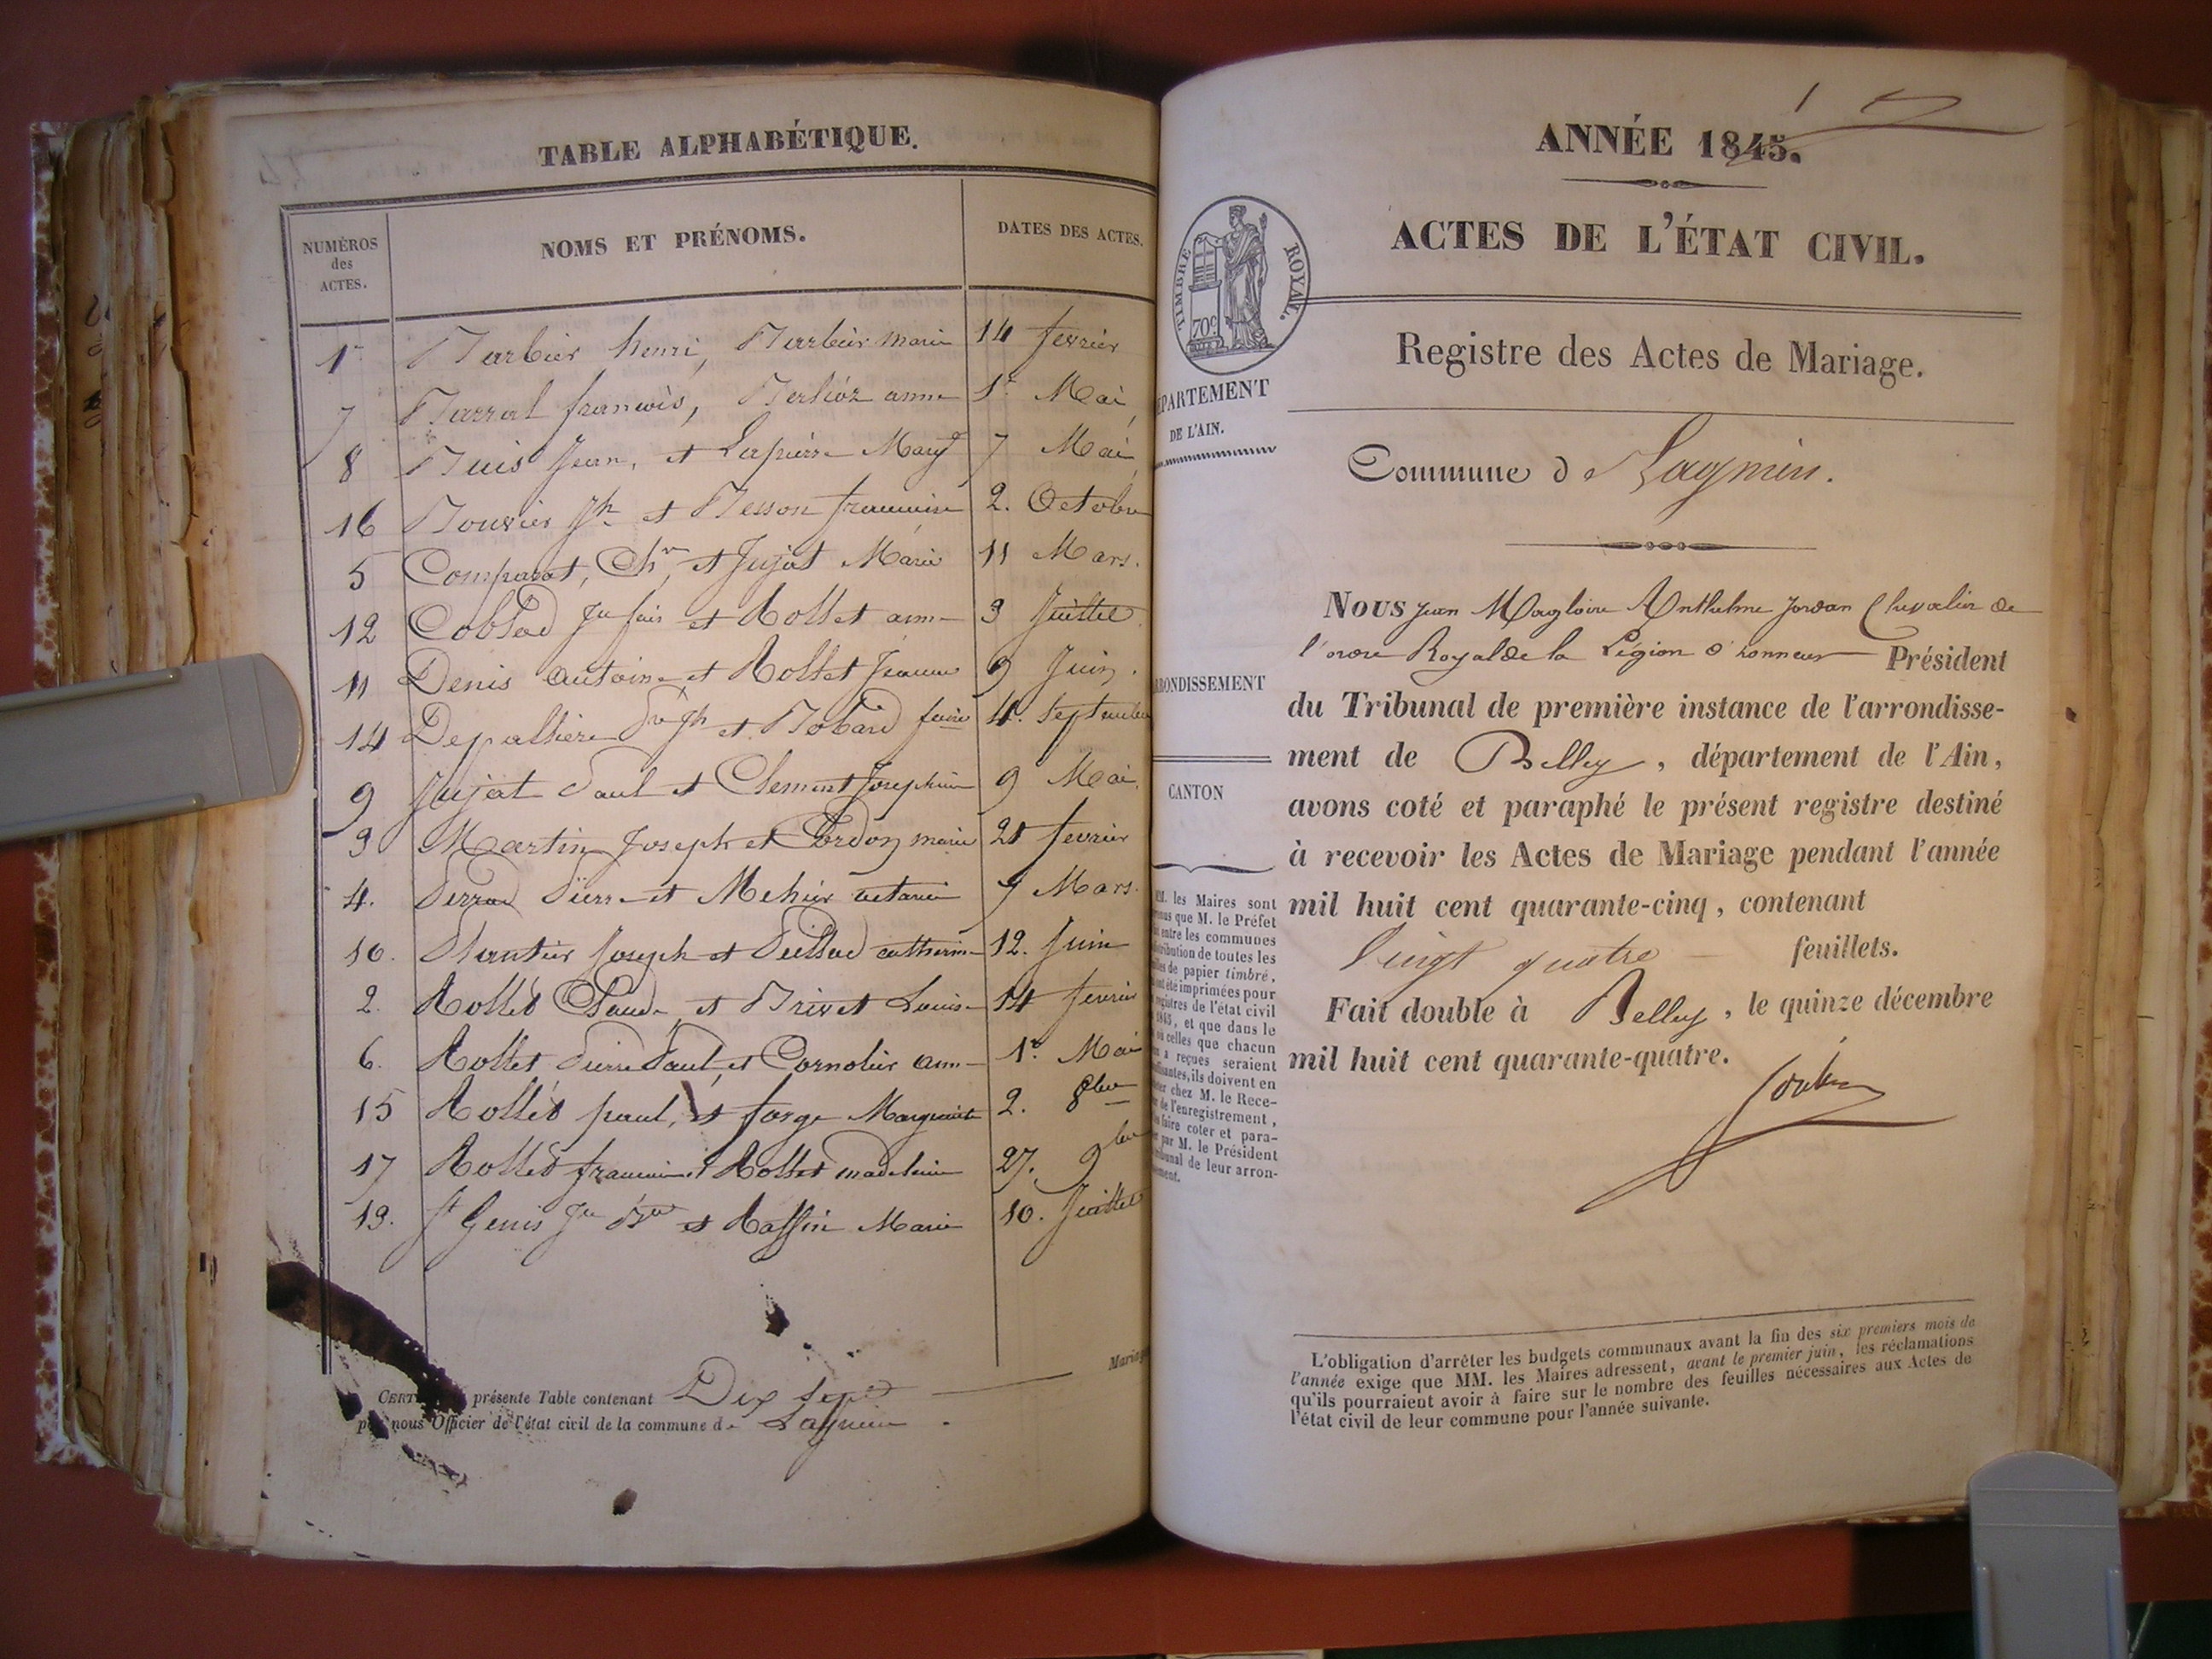 TABLE ALPHABÉTIQUE.
NUMÉROS
des
ACTES.
NOMS ET PRÉNOMS.
DATES DES ACTES.
1r Barbier henri, Barbier marie 14 fevrier
7 Barral francois, Berlioz anne 1r Mai
8 Buis Jean, et Lapierre 7 Mai
16 Bouvier Jh et Besson francoise 2. Octobre
5 Comparat, et Jujat Marie 11 Mars.
12 et Rollet anne 3 Juillet
11 Denis antoine et Rollet Jeanne 9 Juin.
14 Jh et 4. Septembre
9 Jujat Paul et Clement Josephine 9 Mai.
3 Martin Joseph et Cordon marie 21 fevrier
4. Perrod Pierre et Mehier 9 Mars.
10. Plantier Joseph et catherine 12. Juin
2. Rollet Claude et Brivet Louise 14 fevrier
6. Rollet Pierre Paul et Cornolier anne 1r. Mai
15 Rollet paul, et forge Marguerite 2. 8bre
17 Rollet et Rollet madeleine 27. 9bre
13. St Genis et Marie 10. Juillet
Mariag
CERT présente Table contenant Dix Sept
nous Officier de l'état civil de la commune de Lagnieu.
ANNÉE 1845.
ACTES DE L'ÉTAT CIVIL.
TIMBRE ROYAL.
70c
Registre des Actes de Mariage.
PARTEMENT
DE L'AIN.
Commune de Lagnieu.
Nous Jean Magloire Anthelme Jordan Chevalier de
l'ordre Royal de la Légion d'honneur Président
RONDISSEMENT
du Tribunal de première instance de l'arrondisse-
ment de Belley, département de l'Ain,
CANTON
avons coté et paraphé le présent registre destiné
à recevoir les Actes de Mariage pendant l'année
mil huit cent quarante-cinq, contenant
Vingt quatre feuillets.
Fait double à Belley, le quinze décembre
mil huit cent quarante-quatre.
MM. les Maires sont
que M. le Préfet
entre les communes
distribution de toutes les
de papier timbré,
ont été imprimées pour
registres de l'état civil
1845, et que dans le
celles que chacun
a reçues seraient
ils doivent en
chez M. le Rece-
de l'enregistrement,
faire coter et para-
par M. le Président
tribunal de leur arron-
Jordan
L'obligation d'arrêter les budgets communaux avant la fin des six premiers mois de
l'année exige que MM. les Maires adressent, avant le premier juin, les réclamations
qu'ils pourraient avoir à faire sur le nombre des feuilles nécessaires aux Actes de
l'état civil de leur commune pour l'année suivante.